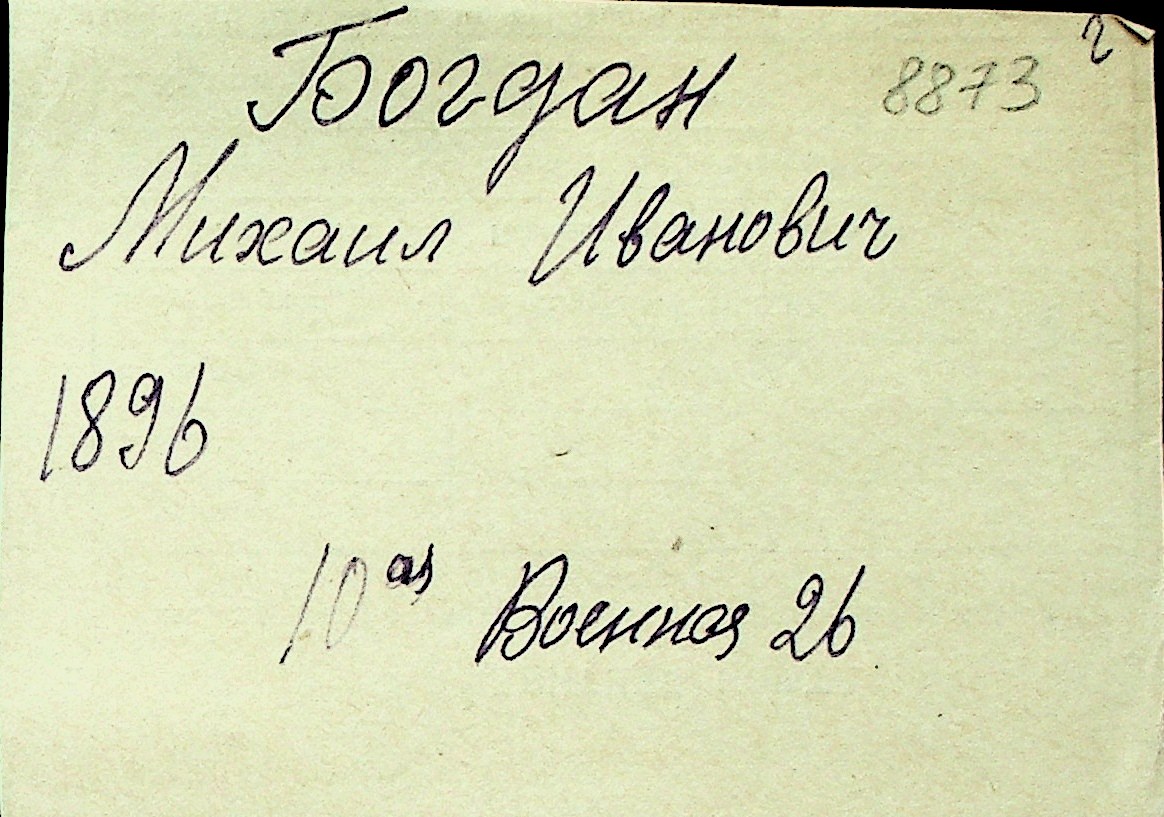 Богдан 8873
Михаил Иванович
1896
10ая Военная 26